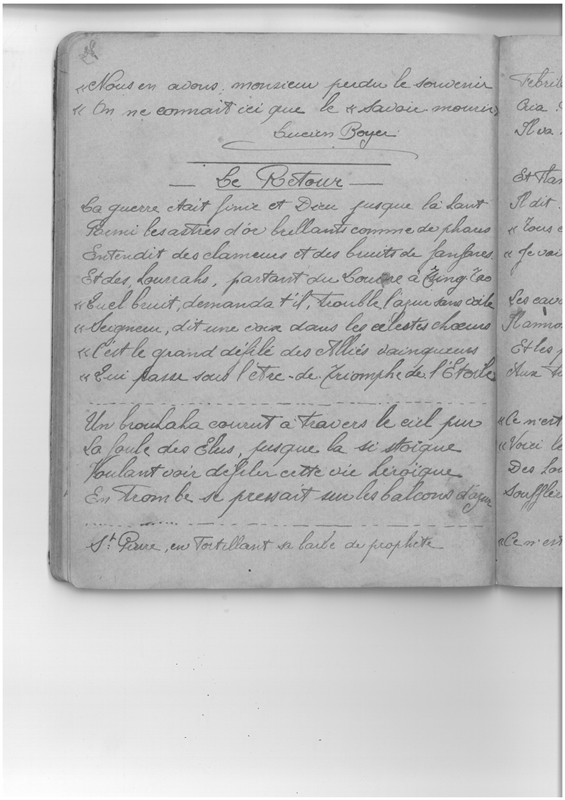 « Nous en avons, monsieur perdu le souvenir
« On ne connait ici que le « savoir mourir »
Lucien Boyer
— Le Retour —
La guerre était finie et Dieu jusque là haut
Parmi les astres d'or brillants comme des phares
Entendit des clameurs et des bruits de fanfares
Et des hourrahs, partant du à
« Quel bruit, demanda t'il, trouble l'azur sans voile
« Seigneur, dit une voix dans les célestes chœurs
« C'est le grand défilé des Alliés vainqueurs
« Qui passe sous l' de Triomphe de l'Etoile
Un brouhaha courut à travers le ciel pur
La foule des Elus, jusque la si stoïque
Voulant voir défiler cette vie héroïque
En trombe se pressait sur les balcons d'azur
St Pierre, en tortillant sa barbe de prophète
Febrile
Il va
Il dit
« Tous
« Je voi
Les cava
Et les
Aux
« Ce n'est
« Voici le
Des
Souffle
« Ce n'est